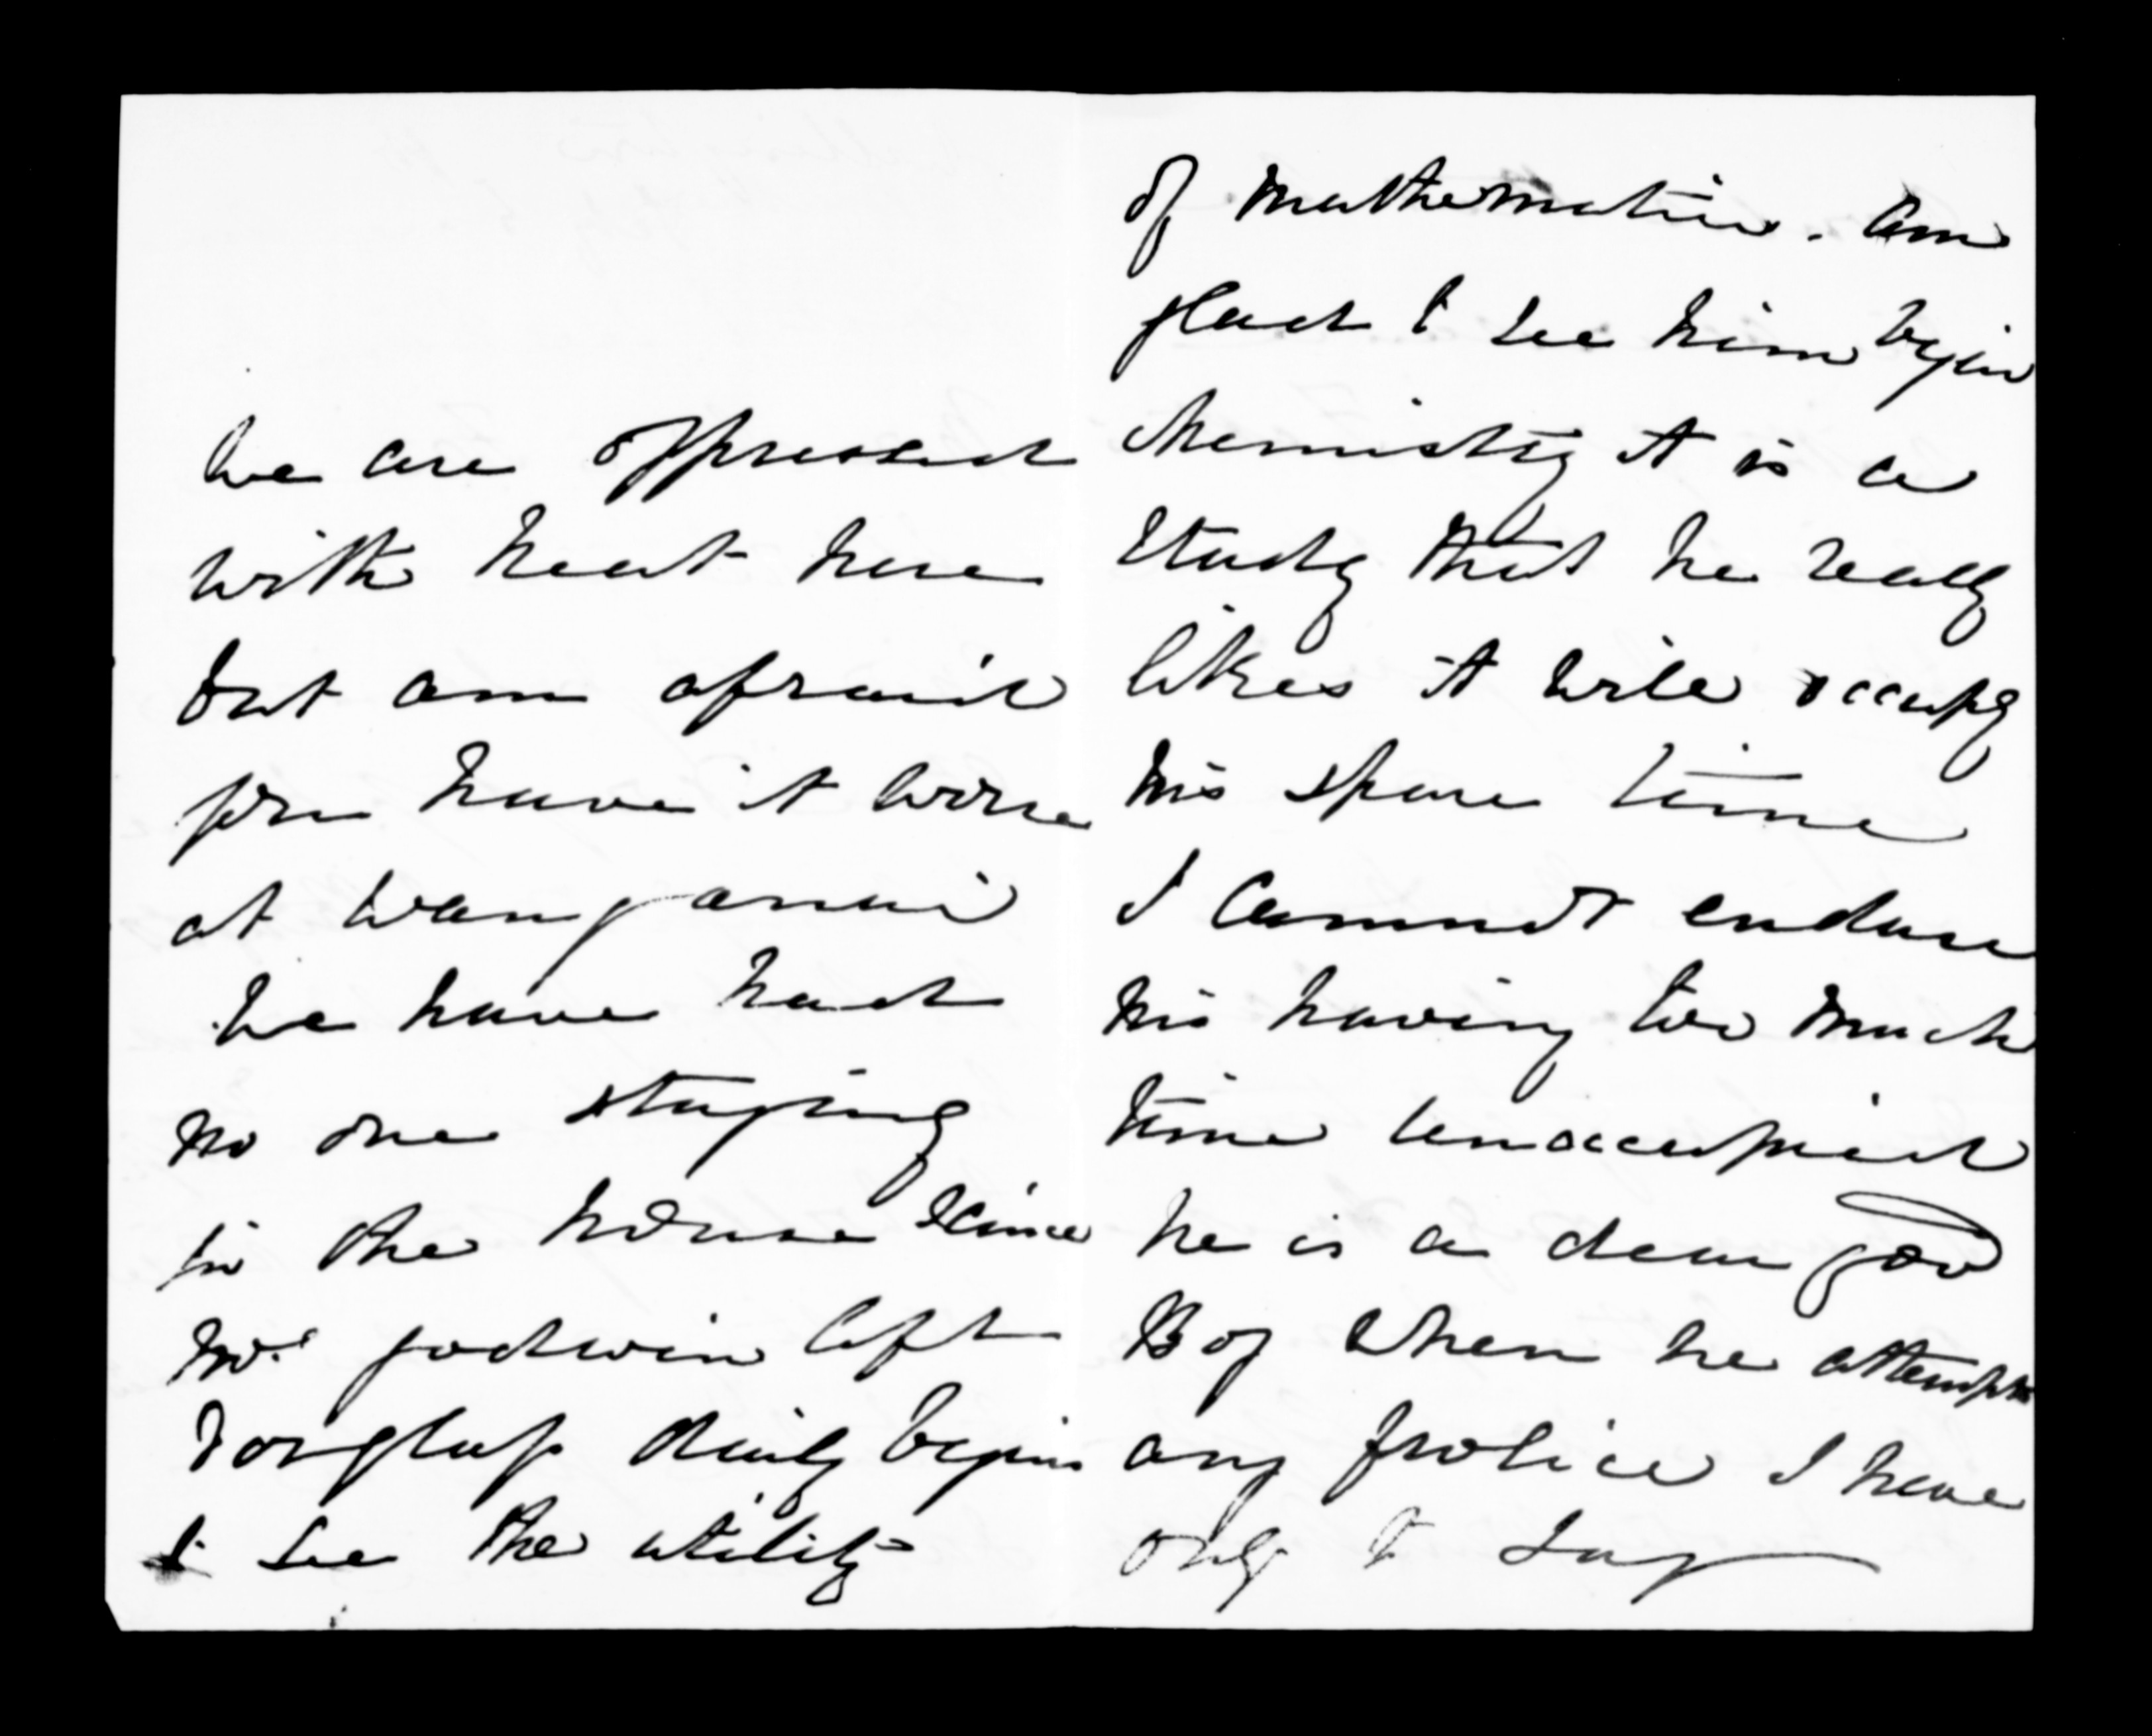 We are oppressed
with heat here
but am afraid
you have it worse
at Wanganui
We have had
no one staying
in the house since
Mrs Godwin left
Douglas daily begins
to see the utility
of Mathematics. Am
glad to see him begin
chemistry it is a
study that he really
likes it will occupy
his spare time
I cannot endure
his having too much
time unoccupied
he is a dear good
Boy when he attempts
any frolics I have
only to say